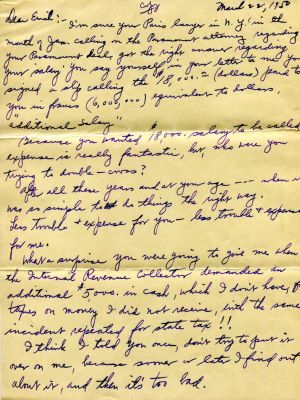 March 22, 1950
Dear Erich:-
I'm sure your Paris lawyer in N.Y. in the
month of Jan. calling on the Paramount attorney regarding
your Paramount deal, got the right answer regarding
your salary. You say yourself in your letter to me you
signed a slip calling the $8,000.00 (dollars) paid to
you in francs (6,000,000) equivalent to dollars.
"additional Salary"
Because you wanted $8,000. salary to be called
expense is really fantastic, but, who were you
trying to double-cross?
After all these years and at your age --- when it
was so simple to do things the right way.
Less trouble + expense for you - less trouble + expense
for me.
What a surprise you were going to give me when
the Internal Revenue Collector demanded an
additional $5000. in cash, which I don't have, for
taxes on money I did not receive, with the same
incident repeated for state tax!!
I think I told you once, don't try to put it
over on me, because sooner or late I find out
about it, and then it's too bad.